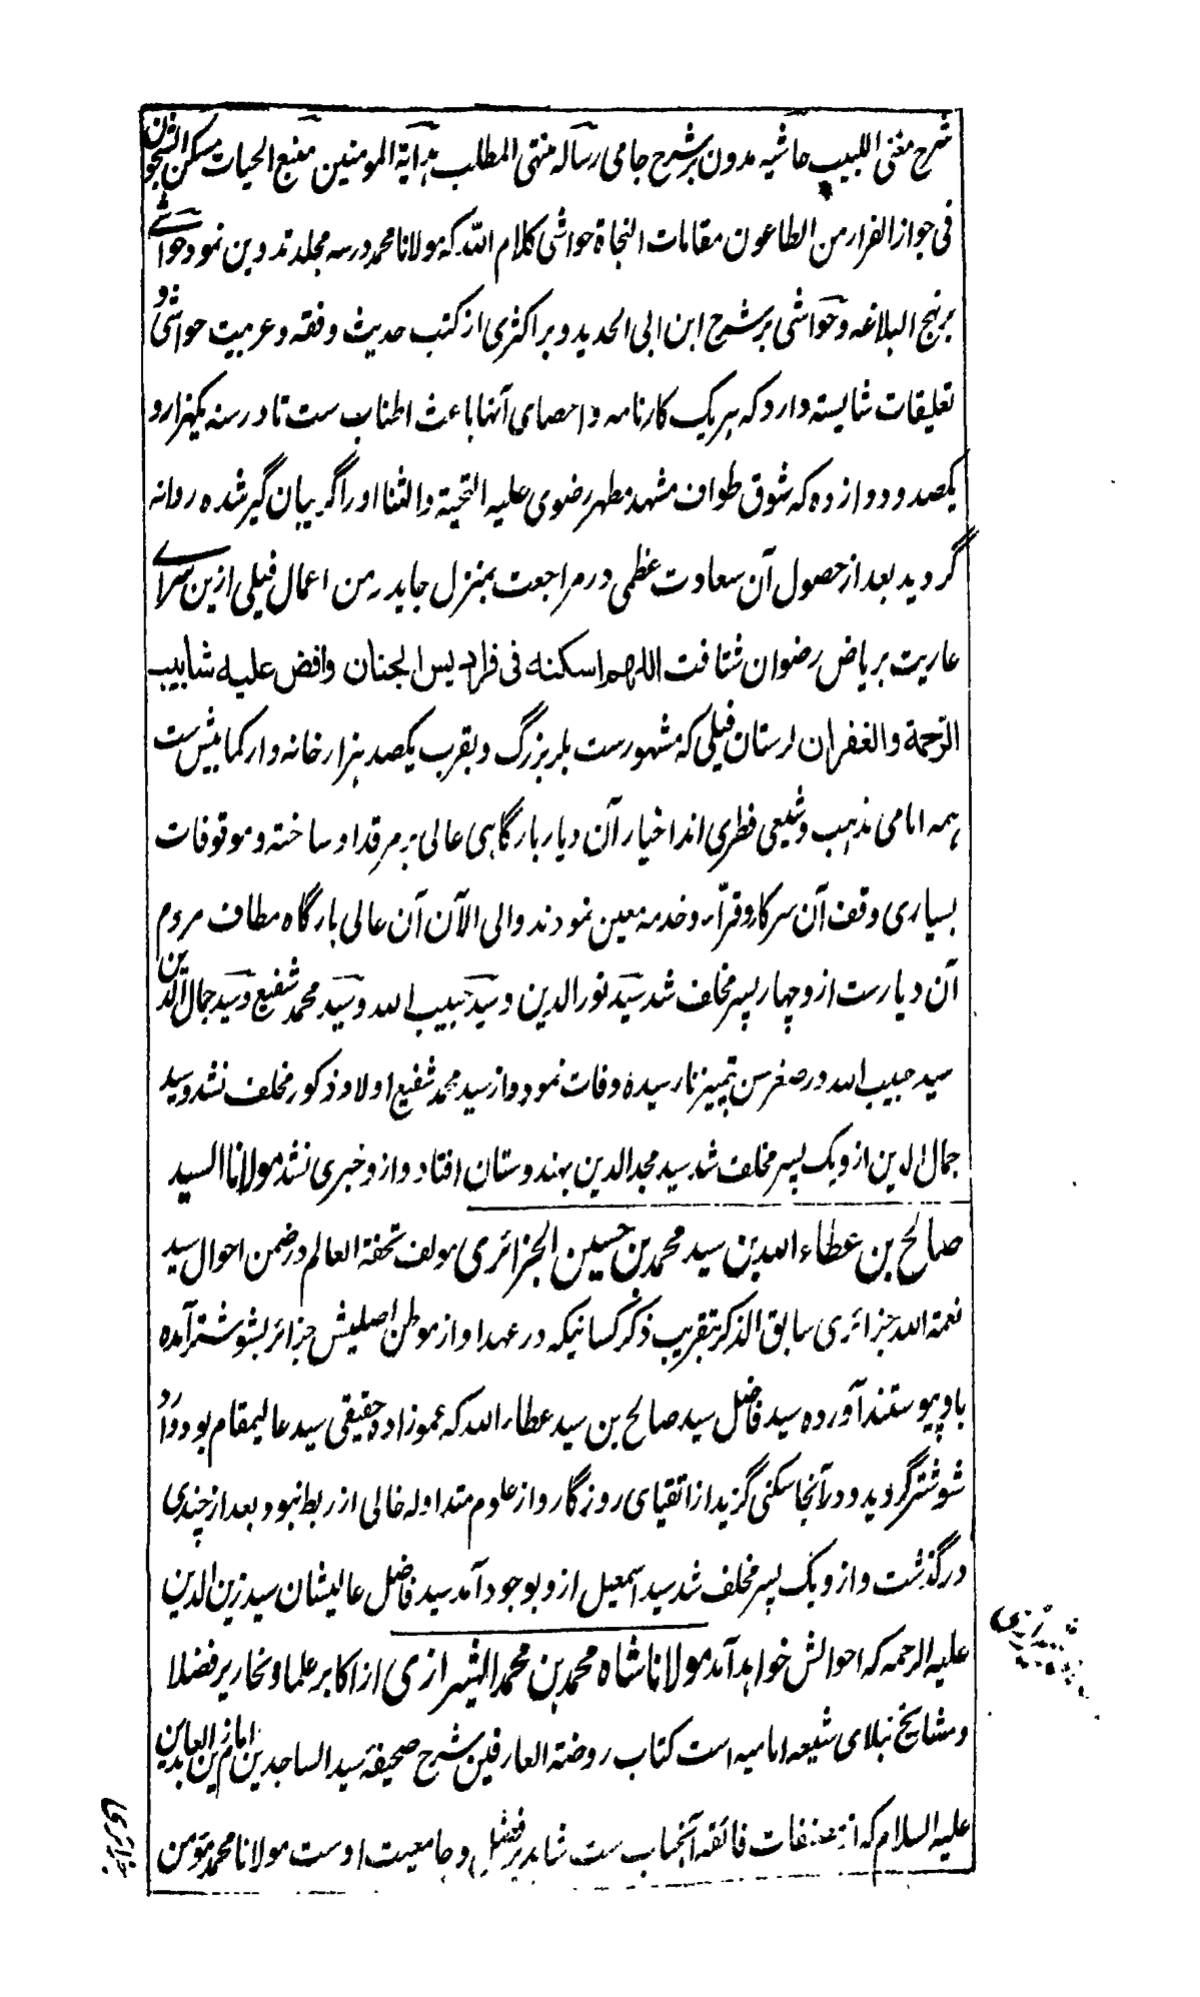 شرح مغنی اللبیب حاشیه مدون بر شرح جامی رساله منتهی المطلب هدایة المومنین منبع الحیات مسکن الشجون
فی جواز الفرار من الطاعون مقامات النجاة حواشی کلام الله که مولانا محمد در سه مجلد تدوین نمود حواشی
بر نهج البلاغه و حواشی بر شرح ابن ابی الحدید و بر اکثری از کتب حدیث و فقه و عربیت حواشی و
تعلیقات شایسته دارد که هر یک کارنامه و احصای آنها باعث اطناب ست تا در سنه یکهزار و
یکصد و دوازده که شوق طواف مشهد مطهر رضوی علیه التحیة والثنا او را گریبان گیر شده روانه
گردید بعد از حصول آن سعادت عظمی در مراجعت بمنزل جایدر من اعمال فیلی ازین سرای
عاریت بریاض رضوان شتافت اللهم اسکنه فی فرادیس الجنان وافض علیه شابیب
الرحمة والغفران لرستان فیلی که مشهورست بلر بزرگ و بقرب یکصد هزار خانه وار کمابیش ست
همه امامی مذهب و شیعی فطری اند اخیار آن دیار بارگاهی عالی بر مرقد او ساخته و موقوفات
بسیاری وقف آن سرکار و قرّاء و خدمه معین نمودند والی الآن آن عالی بارگاه مطاف مردم
آن دیارست ازو چهار پسر مخلف شد سید نورالدین و سید حبیب الله و سید محمد شفیع و سید جمال الدین
سید حبیب الله در صغر سن بتمیز نارسیده وفات نمود و از سید محمد شفیع اولاد ذکور مخلف نشد و سید
جمال الدین ازو یک پسر مخلف شد سید مجدالدین بهندوستان افتاد و ازو خبری نشد مولانا السید
صالح بن عطاء الله بن سید محمد بن حسین الجزائری مولف تحفة العالم در ضمن احوال سید
نعمة الله جزائری سابق الذکر بتقریب ذکر کسانیکه در عهد او از موطن اصلیش جزائر بشوشتر آمده
باو پیوستند آورده سید فاضل سید صالح بن سید عطاء الله که عموزاده حقیقی سید عالیمقام بود وارد
شوشتر گردید و در آنجا سکنی گزید از اتقیای روزگار و از علوم متداوله خالی از ربط نبود بعد از چندی
درگذشت و ازو یک پسر مخلف شد سید اسمعیل ازو بوجود آمد سید فاضل عالیشان سید زین الدین
علیه الرحمه که احوالش خواهد آمد مولانا شاه محمد بن محمد الشیرازی از اکابر علما و نحاریر فضلا
و مشایخ نبلای شیعه امامیه است کتاب روضة العارفین شرح صحیفه سید الساجدین امام زین العابدین
علیه السلام که از مصنفات فائقه آنجناب ست شاهد بر فضل و جامعیت اوست مولانا محمد مومن
جزائری